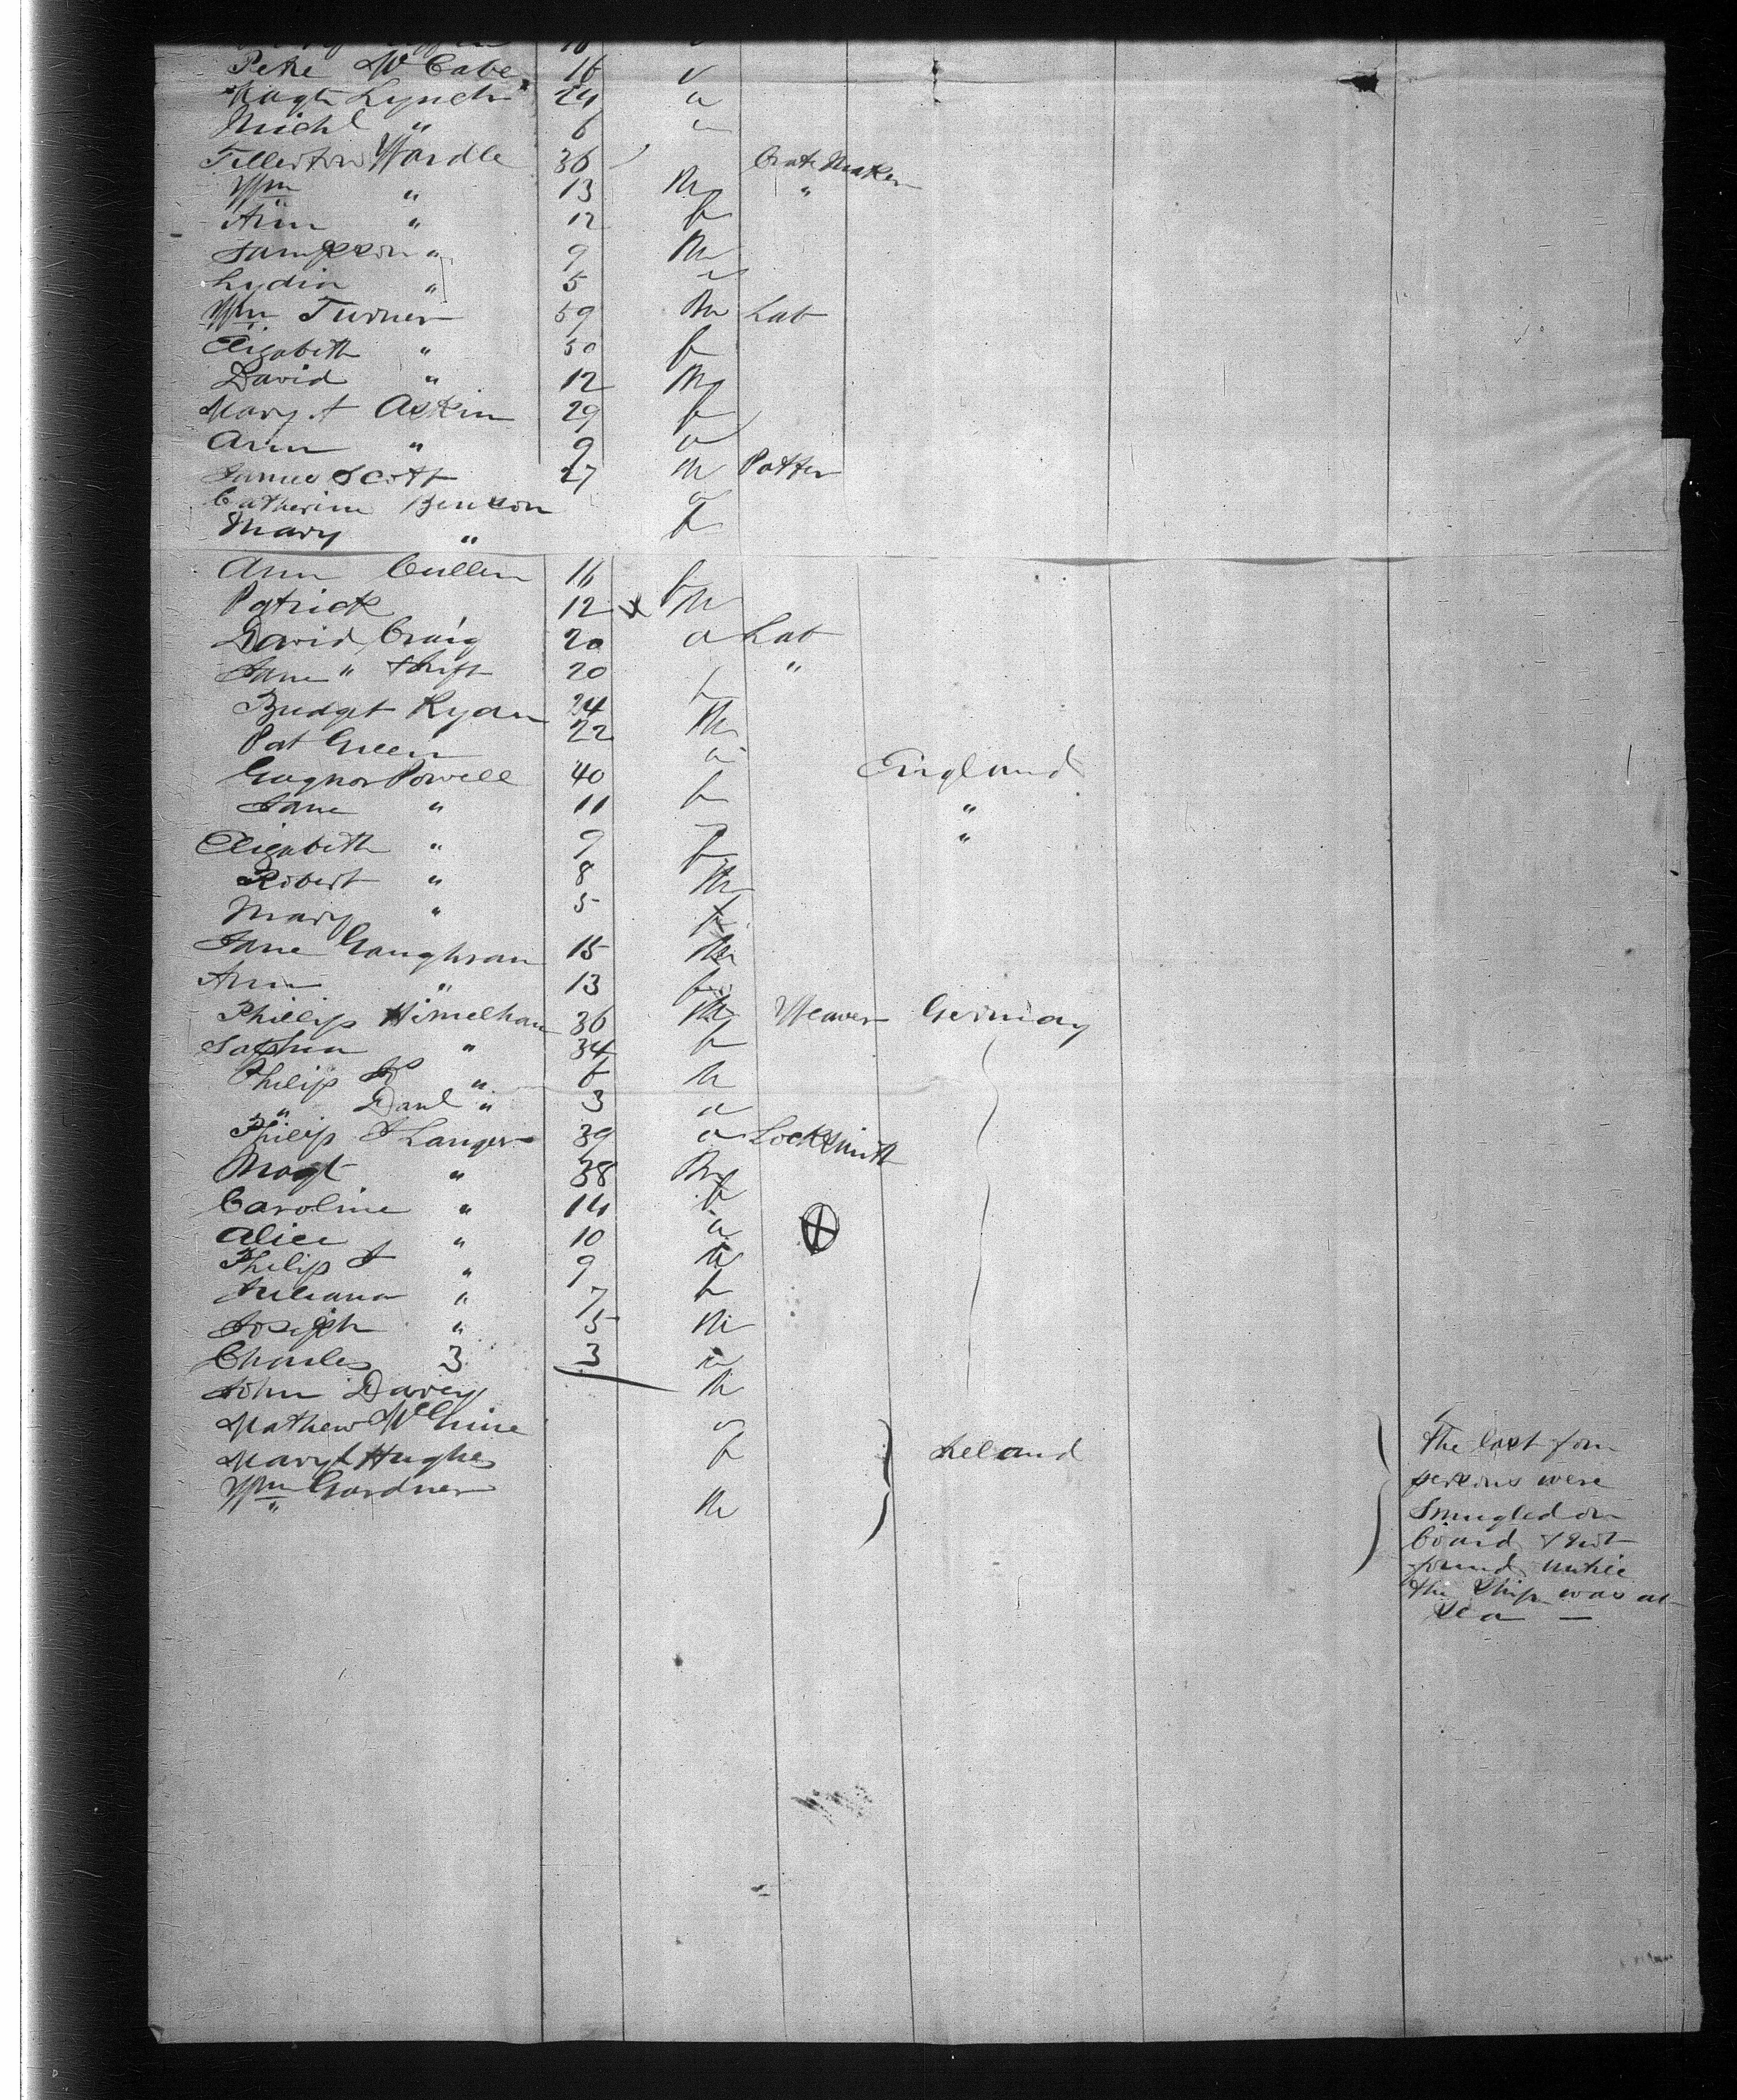 Pete McCabe 16 "
Magt Lynch 24 "
Michl " 6 "
Fillerton Wardle 36 Crate Maker
Wm " 13 M "
Ann " 12 f
Sampson " 9 M
Lydia " 5 "
Wm Turner 59 M Lab
Elizabeth " 50 f
David " 12 M
Mary A Askin 29 f
Ann " 9 "
James Scott 27 M Potter
Catherine Benson "
Mary " f
Ann Cullen 16 f
Patrick 12 x M
David Craig 20 " Lab
Jane " 20 "
Bridget Ryan 24 f
Pat Green 22 M
Gagnor Powell 40 " England
Jane " 11 f "
Elizabeth " 9 f "
Robert " 8 M
Mary " 5 f
Jane Gaughran 15 M
Ann " 13 f
Phillip Himelhan 36 M Weaver Germany
Sophia " 34 f
Philip " 6 M
" Danl " 3 "
Philip J Langer 39 " Locksmith
Magt " 38 M
Caroline " 14 f
Alice " 10 "
Philip J " 9 M
Juliana " 7 f
Joseph " 5 M
Charles 3 3 "
John Davey M
Mathew McGuire "
Mary Hughes f Ireland
Wm Gardner M
"
The last four
persons were
Smugled on
board & not
found untill
the Ship was at
Sea —